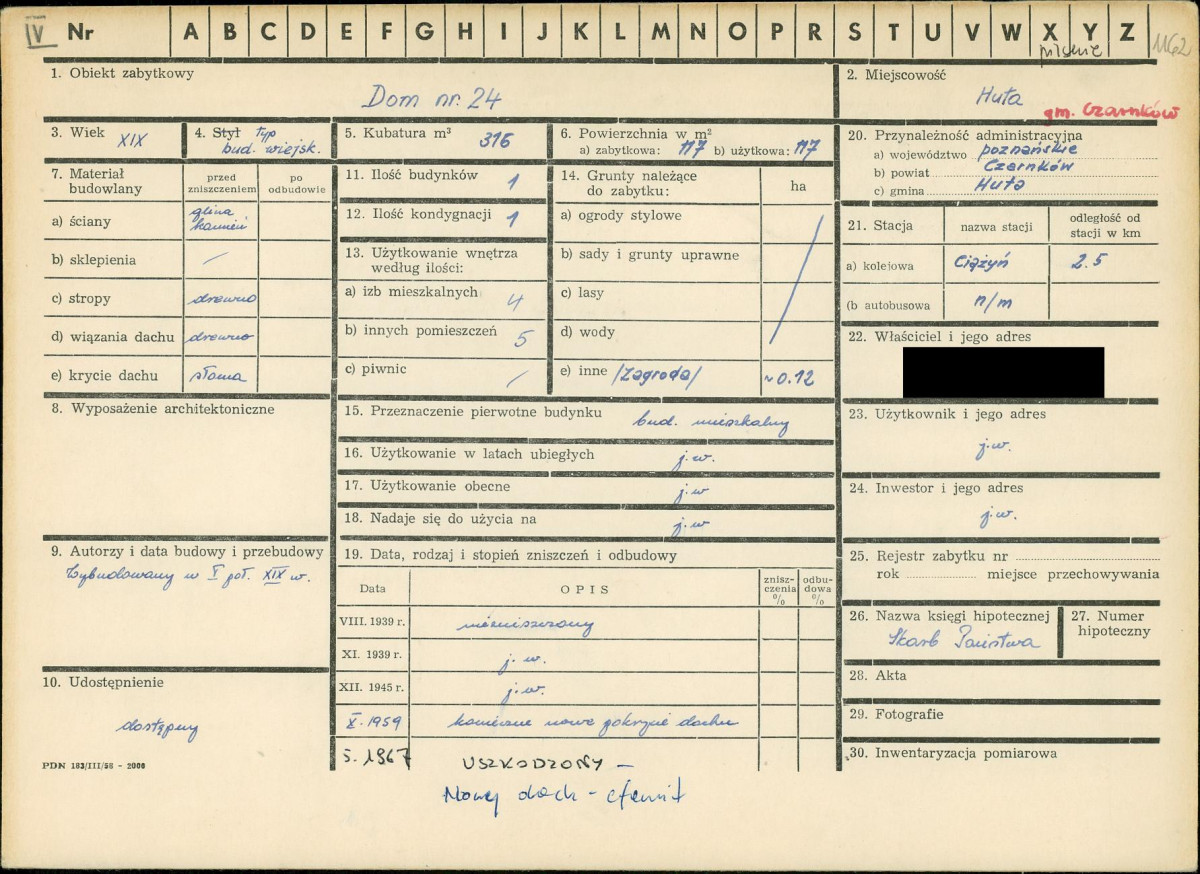 IV Nr A B C D E F G H I J K L M N O P R S T U V W X Y Z 1162
pilskie
1. Obiekt zabytkowy
Dom nr. 24
2. Miejscowość
Huta
gm. Czarnków
3. Wiek
XIX
4. Styl typ
bud. wiejsk.
5. Kubatura m³
316
6. Powierzchnia w m²
a) zabytkowa: 117 b) użytkowa: 117
20. Przynależność administracyjna
a) województwo poznańskie
b) powiat Czarnków
c) gmina Huta
7. Materiał budowlany
przed zniszczeniem
po odbudowie
a) ściany glina kamień
b) sklepienia /
c) stropy drewno
d) wiązania dachu drewno
e) krycie dachu słoma
11. Ilość budynków 1
12. Ilość kondygnacji 1
13. Użytkowanie wnętrza
według ilości:
a) izb mieszkalnych 4
b) innych pomieszczeń 5
c) piwnic /
14. Grunty należące
do zabytku:
ha
a) ogrody stylowe
b) sady i grunty uprawne
c) lasy
d) wody
e) inne /Zagroda/ ~0.12
21. Stacja
nazwa stacji
odległość od
stacji w km
a) kolejowa Ciążyń 2.5
(b autobusowa n/m
22. Właściciel i jego adres
8. Wyposażenie architektoniczne
15. Przeznaczenie pierwotne budynku
bud. mieszkalny
16. Użytkowanie w latach ubiegłych j.w.
17. Użytkowanie obecne j.w
18. Nadaje się do użycia na j.w
23. Użytkownik i jego adres
j.w.
24. Inwestor i jego adres
j.w.
9. Autorzy i data budowy i przebudowy
Wybudowany w I poł. XIX w.
19. Data, rodzaj i stopień zniszczeń i odbudowy
Data
OPIS
znisz-
czenia
%
odbu-
dowa
%
VIII. 1939 r. niezniszczony
XI. 1939 r. j.w.
XII. 1945 r. j.w.
X. 1959 konieczne nowe pokrycie dachu
5. 1967 USZKODZONY –
Nowy dach – eternit
25. Rejestr zabytku nr
rok miejsce przechowywania
26. Nazwa księgi hipotecznej
Skarb Państwa
27. Numer
hipoteczny
28. Akta
29. Fotografie
30. Inwentaryzacja pomiarowa
10. Udostępnienie
dostępny
PDN 183/III/58 - 2000